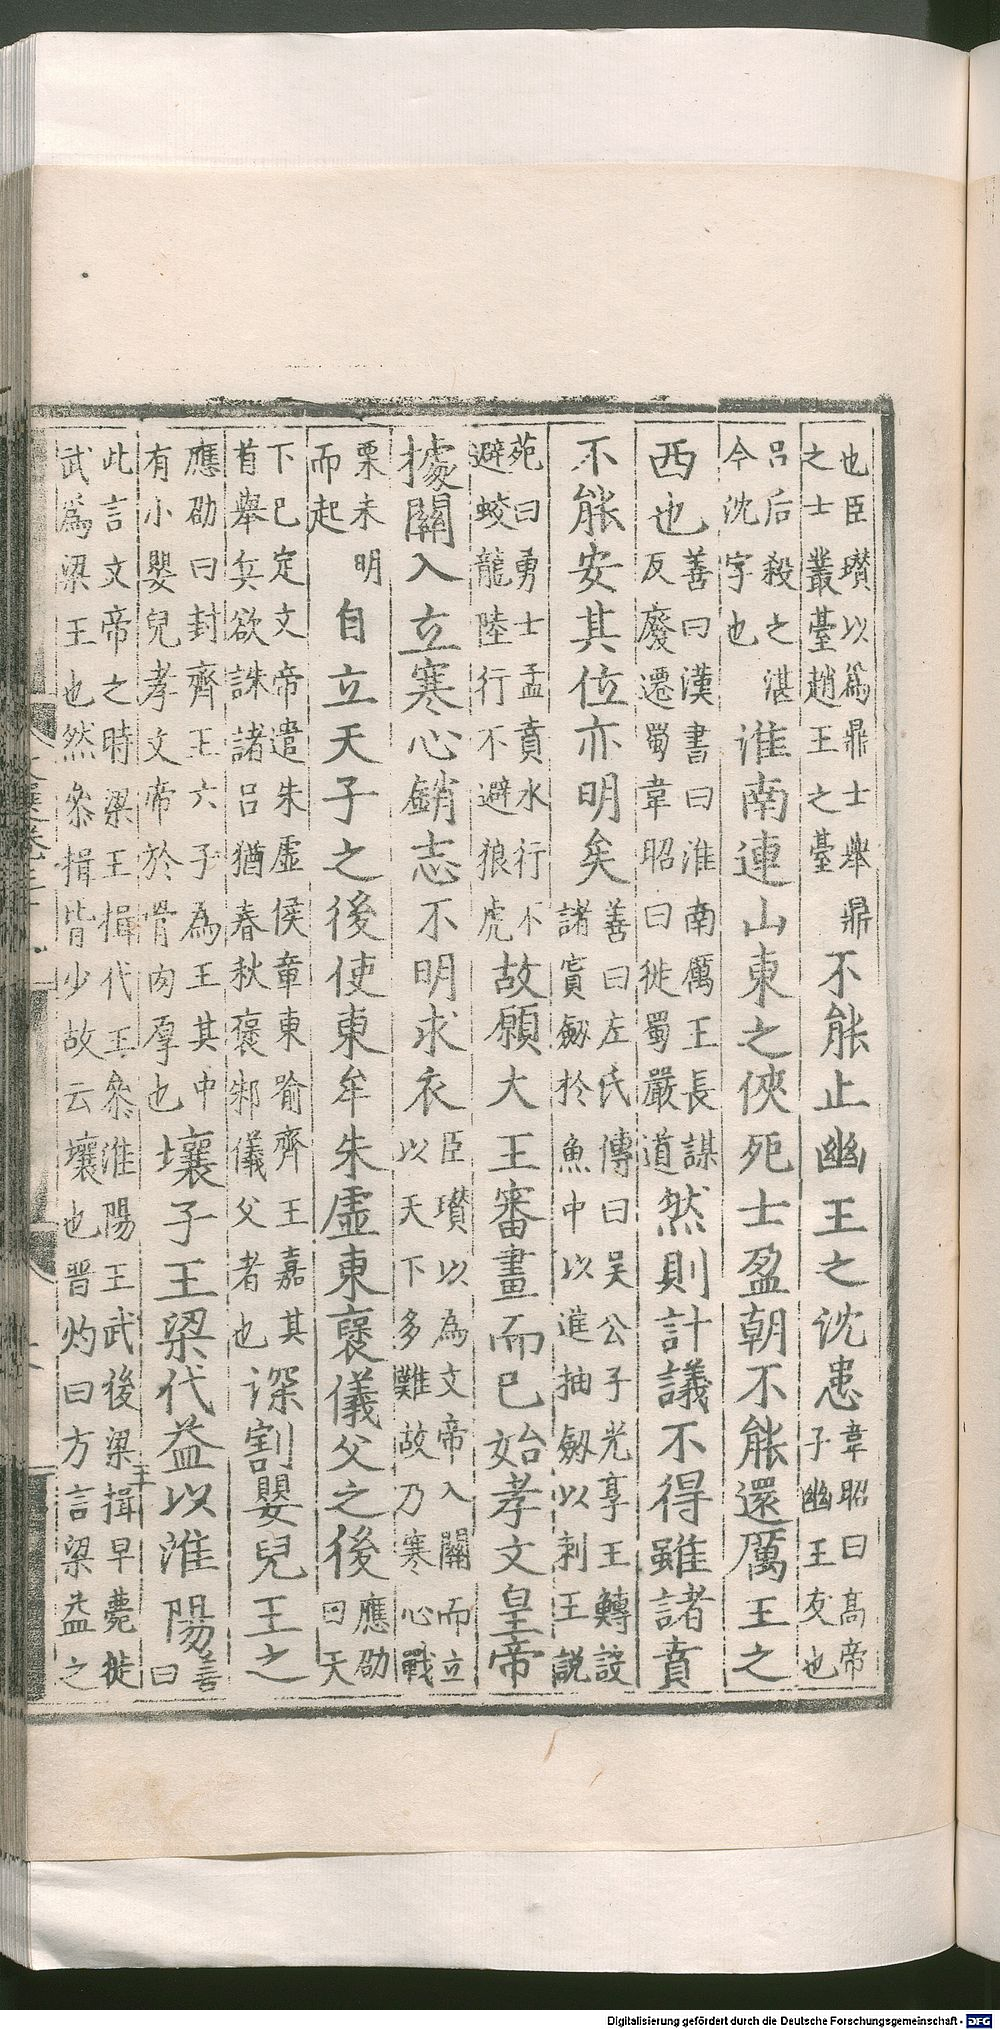 也臣瓚以爲鼎士舉鼎之士叢臺趙王之臺不能止幽王之沈患韋昭曰高帝子幽王友也
呂后殺之湛今沈字也淮南連山東之俠死士盈朝不能還厲王之
西也善曰漢書曰淮南厲王長謀反廢遷蜀韋昭曰徙蜀嚴道然則計議不得雖諸賁
不能安其位亦明矣善曰左氏傳曰吳公子光享王鱄設諸寘劒於魚中以進抽劒以刺王説
苑曰勇士孟賁水行不避蛟龍陸行不避狼虎故願大王審畫而已始孝文皇帝
據關入立寒心銷志不明求衣臣瓚以為文帝入關而立以天下多難故乃寒心戰
栗未明而起自立天子之後使東牟朱虛東襃儀父之後應劭曰天
下已定文帝遣朱虛侯章東喻齊王嘉其首舉兵欲誅諸呂猶春秋褒邾儀父者也深割嬰兒王之
應劭曰封齊王六子為王其中有小嬰兒孝文帝於骨肉厚也壤子王梁代益以淮陽善曰
此言文帝之時梁王揖代王參淮陽王武後梁王揖早薨徙武爲梁王也然參揖皆少故云壤也晉灼曰方言梁益之
Digitalisierung gefördert durch die Deutsche Forschungsgemeinschaft - DFG